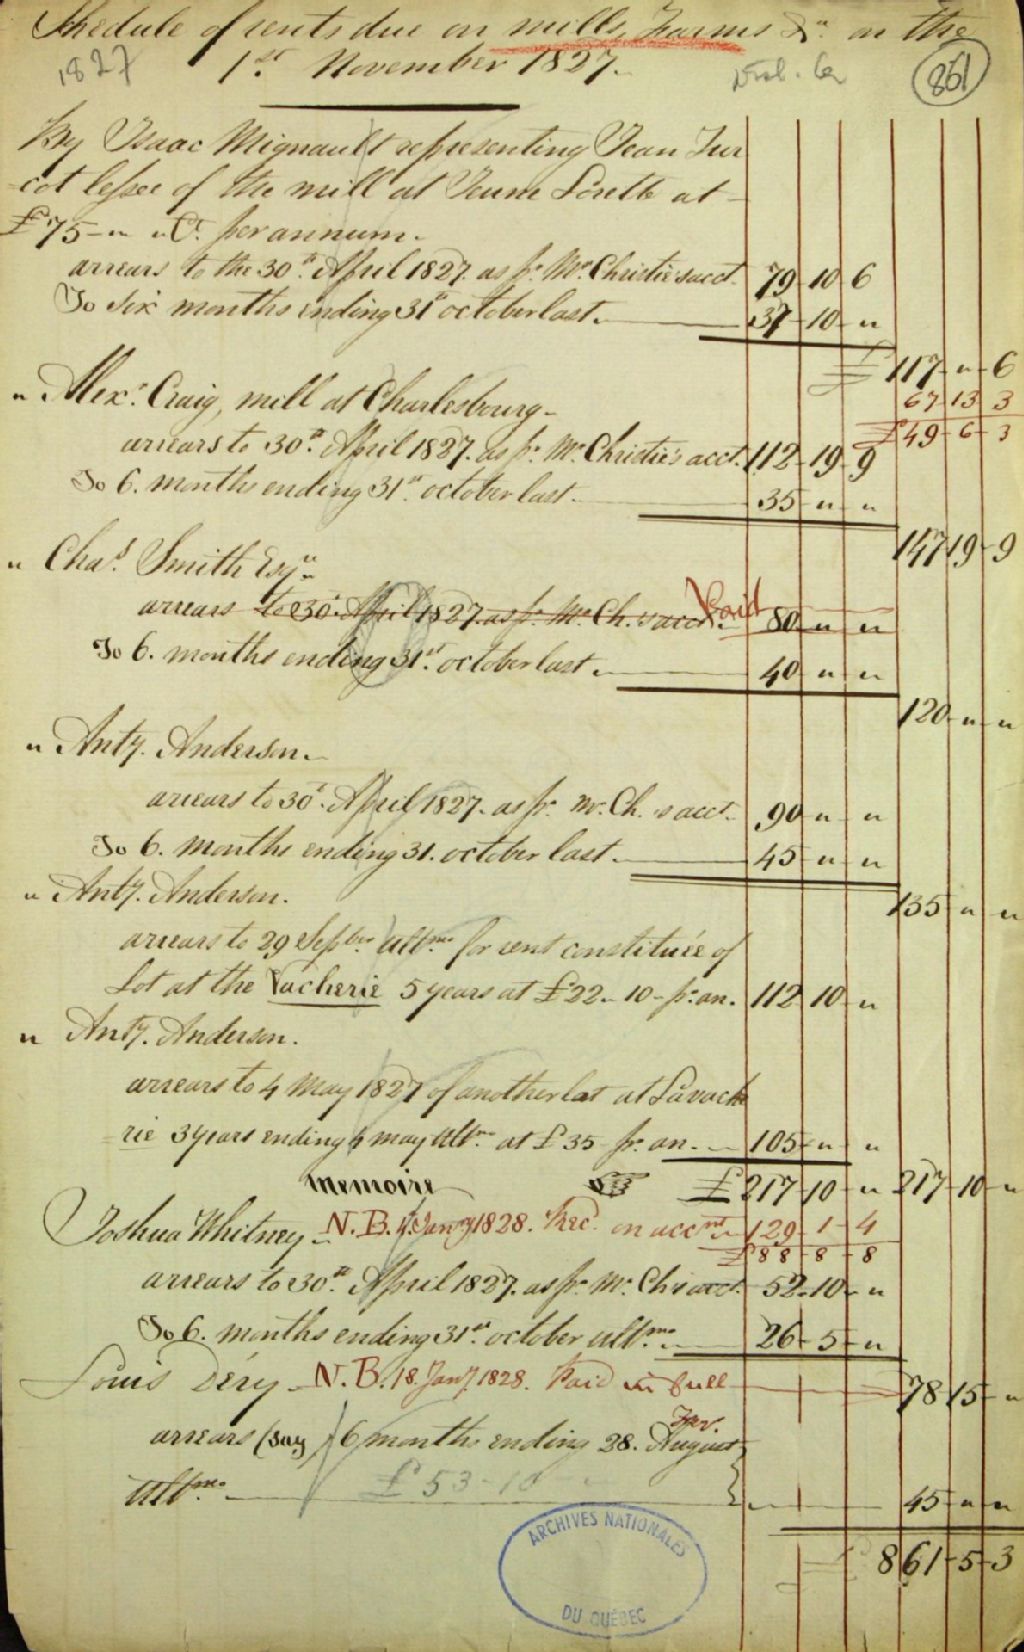 Schedule of rents due on mills, Farms &c. on the
1st. November 1827.
1827
861
By Isaac Mignault representing Jean Tur
cot lessee of the mill at Jeune Lorette at
£75 - " - " Cy. per annum.
arrears to the 30th. April 1827. as pr. Mr. Christie's acct. 79 - 10 - 6
To six months ending 31st october last. 37 - 10 - "
£ 117 - " - 6
67 - 13 - 3
£49 - 6 - 3
" Alexr. Craig, mill at Charlesbourg -
arrears to 30th. April 1827. as pr. Mr. Christie's acct. 112 - 19 - 9
To 6. months ending 31st. october last. 35 - " - "
147 19 - 9
" Chas. Smith Esqr.
arrears to 30th. April 1827. as pr. Mr. Ch.'s acct. Paid 80 - " - "
To 6. months ending 31st. october last. 40 - " - "
120 - " - "
" Anty. Anderson.
arrears to 30th. April 1827. as pr. Mr. Ch.'s acct. 90 - " - "
To 6. months ending 31. october last. 45 - " - "
135 - " - "
" Anty. Anderson.
arrears to 29 Septber. ultmo for rent constituée of
Lot at the Vacherie 5 years at £22 - 10 - pr. an. 112 10 - "
" Anty. Anderson.
arrears to 4 May 1827 of another lot at Lavache
rie 3 years ending 4 may ultmo. at £35 pr. an. 105 - " - "
Memoire £217 - 10 - " 217 - 10 - "
Joshua Whitney N.B. 4. Jany 1828. Rec. on accnt. 129 - 1 - 4
£88 - 8 - 8
arrears to 30th. April 1827. as pr. Mr. Ch's acct. 52 - 10 - "
To 6. months ending 31st. october ultmo. 26 - 5 - "
Louis Déry - N.B. 18. Jany. 1828. Paid in full 78 15 - "
Fev.
arrears (say) 6 months ending 28. August
ultmo. 45 - " - "
£53 - 10
£ 861 - 5 - 3
ARCHIVES NATIONALES
DU QUÉBEC